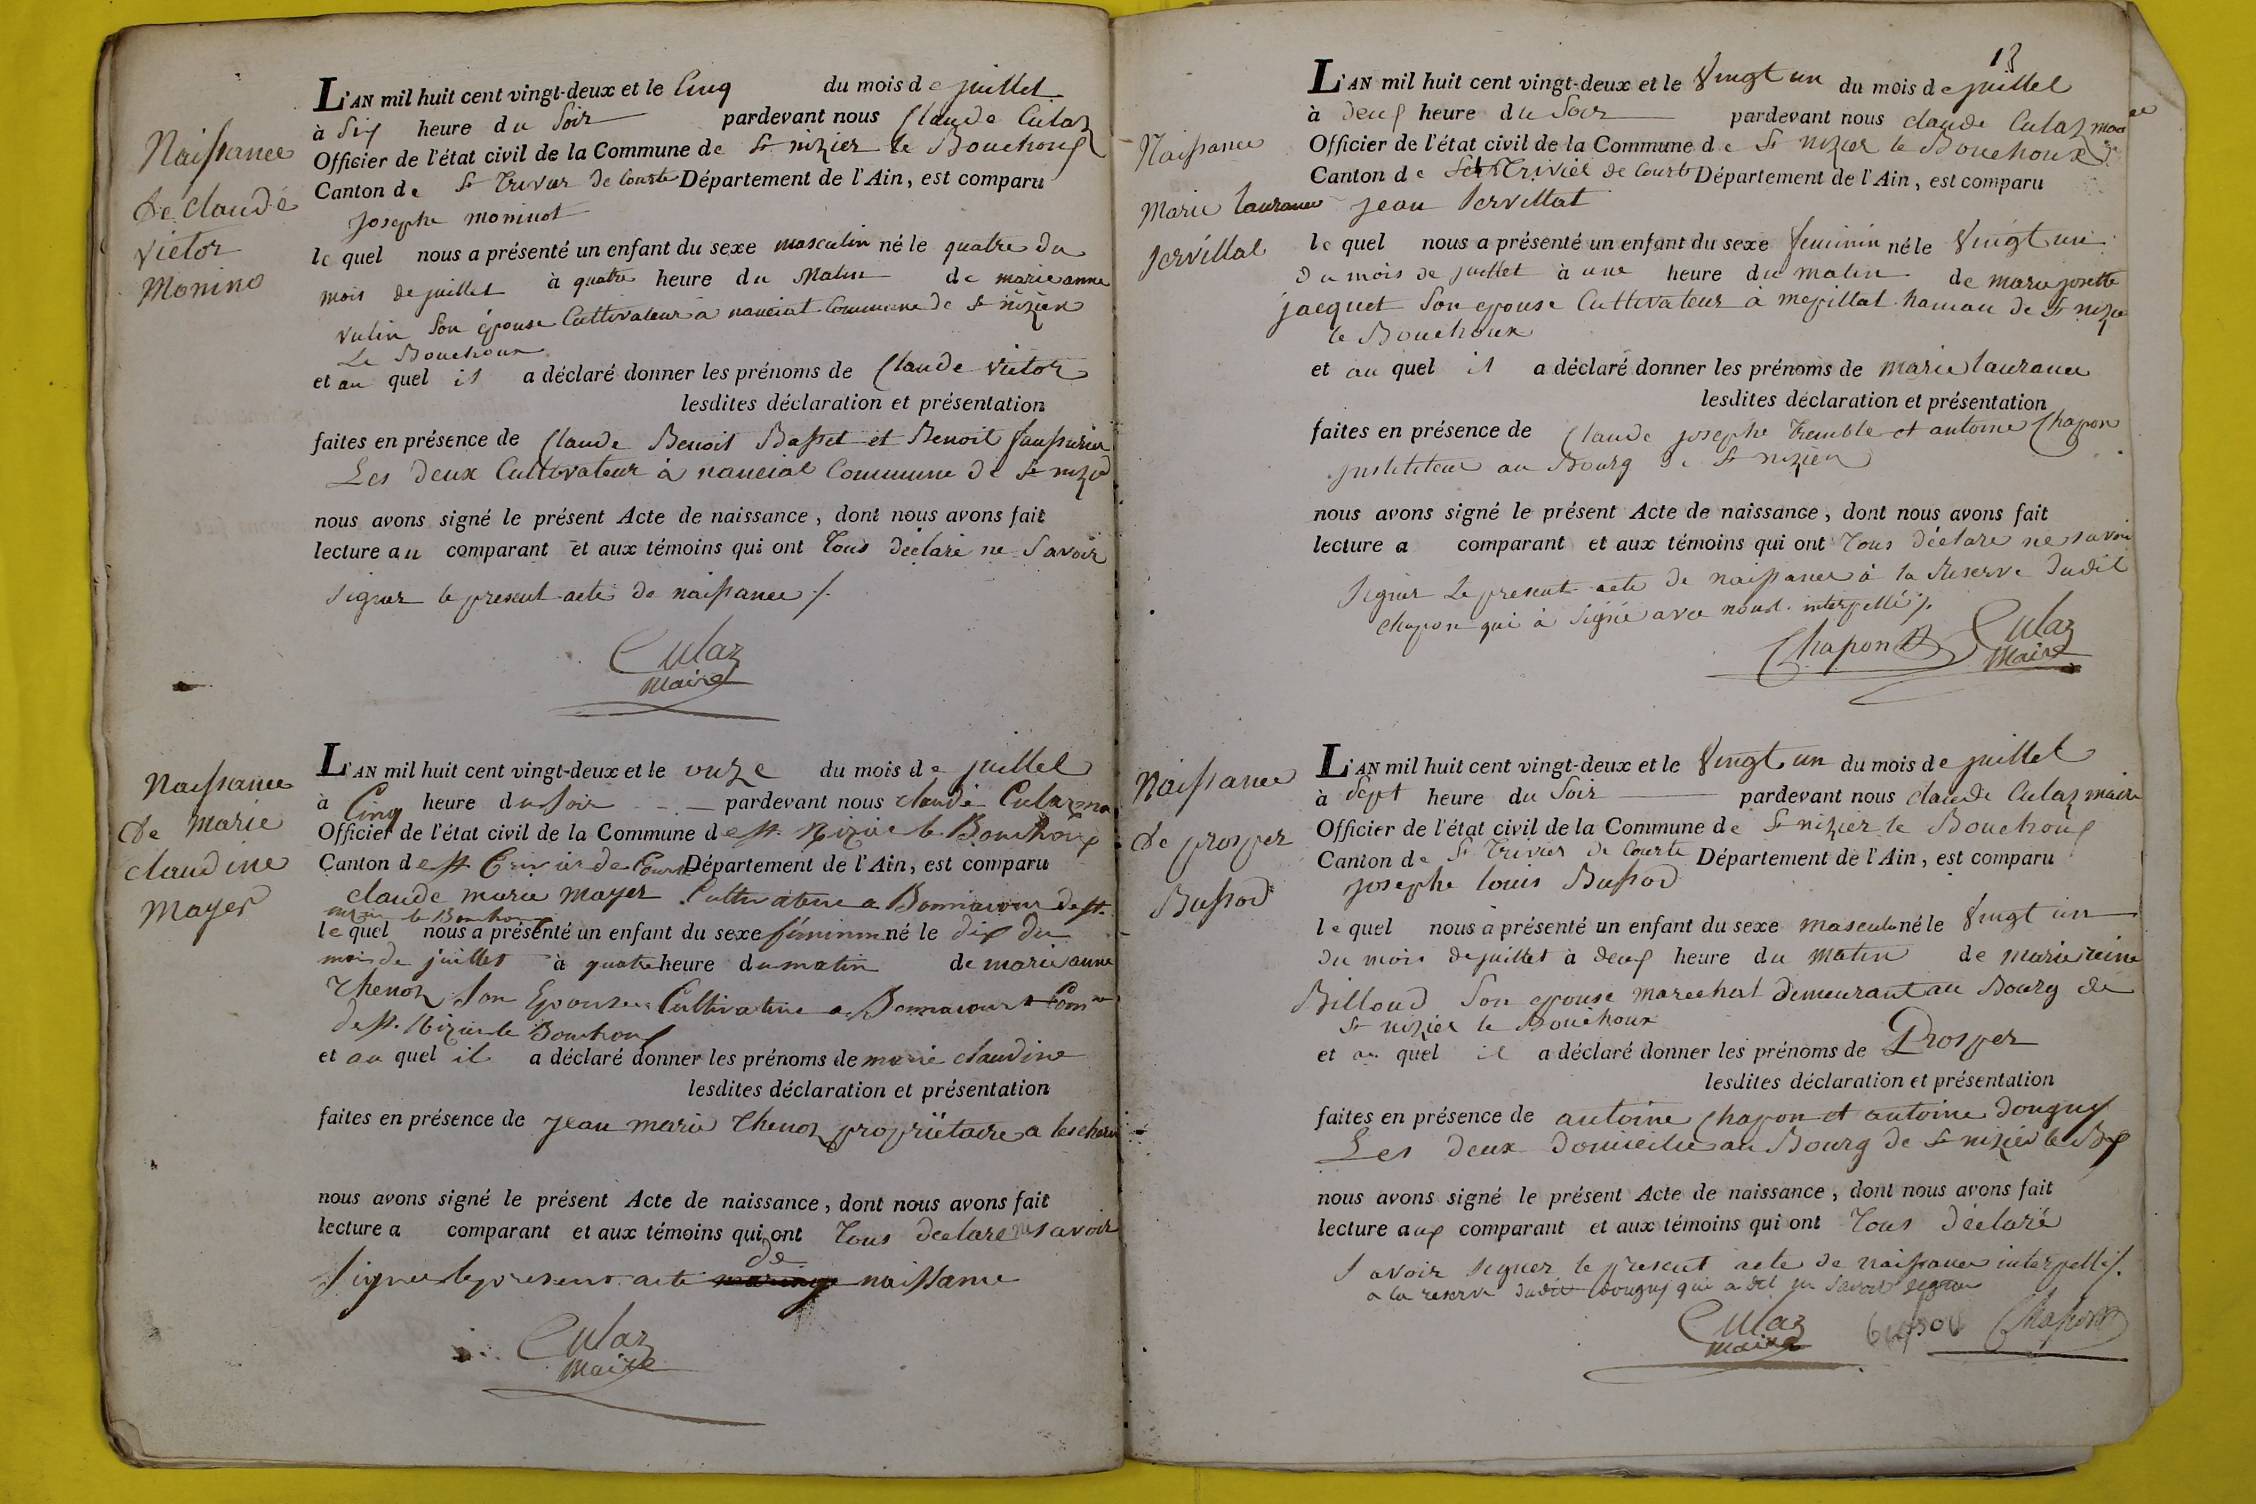 Naissance
de Claude
victor
Monino
L'AN mil huit cent vingt-deux et le Cinq du mois de juillet
à Six heure du Soir pardevant nous Claude Culaz
Officier de l'état civil de la Commune de St nizier le Bouchoux
Canton de St Trivier de Courte Département de l'Ain, est comparu
Josephe moninot
le quel nous a présenté un enfant du sexe masculin né le quatre du
mois de juillet à quatre heure du Matin de marie anne
vulin Son épouse Cultivateur à nanciat Commune de St nizier
Le Bouchoux
et au quel il a déclaré donner les prénoms de Claude victor
lesdites déclaration et présentation
faites en présence de Claude Benoit Basset et Benoit
Les deux Cultivateur à nanciat Commune de St nizie
nous avons signé le présent Acte de naissance, dont nous avons fait
lecture au comparant et aux témoins qui ont Tous déclaré ne Savoir
signer le présent acte de naissance /.
Culaz
Maire
Naissance
de marie
claudine
Mayer
L'AN mil huit cent vingt-deux et le onze du mois de juillet
à Cinq heure du Soir pardevant nous claude Culaz ma
Officier de l'état civil de la Commune de st. Nizier le Bouchoux
Canton de st Trivier de Courte Département de l'Ain, est comparu
claude marie mayer Cultivateur a de st.
nizier le Bouchoux
le quel nous a présenté un enfant du sexe féminin né le dix du
mois de juillet à quatre heure du matin de marie anne
Thenoz Son Epouse Cultivatrice a Com
de st. Nizier le Bouchoux
et au quel il a déclaré donner les prénoms de marie claudine
lesdites déclaration et présentation
faites en présence de jean marie Thenoz propriétaire a
nous avons signé le présent Acte de naissance, dont nous avons fait
lecture a comparant et aux témoins qui ont Tous declare ne savoir
de
Signer le present acte mariage naissance
Culaz
Maire
13
Naissance
Marie laurance
servillat
L'AN mil huit cent vingt-deux et le Vingt un du mois de juillet
à deux heure du Soir pardevant nous claude Culaz maire
Officier de l'état civil de la Commune de St nizier le Bouchoux
Canton de St Trivier de Courte Département de l'Ain, est comparu
jean servillat
le quel nous a présenté un enfant du sexe feminin né le Vingt un
du mois de juillet à une heure du matin de marie josette
jacquet Son epouse Cultivateur à mepillat hamau de St nizie
le Bouchoux
et au quel il a déclaré donner les prénoms de marie laurance
lesdites déclaration et présentation
faites en présence de Claude josephe Tremble et antoine Chapon
instititeur au Bourg de St nizier
nous avons signé le présent Acte de naissance, dont nous avons fait
lecture a comparant et aux témoins qui ont Tous déclare ne savoir
Signer Le present acte de naissance à la Reserve dudit
Chapon qui à Signé avec nous. interpellé /.
Chapon Culaz
Maire
Naissance
de prosper
Bussod
L'AN mil huit cent vingt-deux et le Vingt un du mois de juillet
à Sept heure du Soir pardevant nous claude Culaz maire
Officier de l'état civil de la Commune de St nizier le Bouchoux
Canton de St Trivier de Courte Département de l'Ain, est comparu
josephe louis Bussod
le quel nous a présenté un enfant du sexe masculin né le Vingt un
du mois de juillet à deux heure du Matin de marie reine
Billoud Son epouse marechal demeurant au Bourg de
St nizier le Bouchoux
et au quel il a déclaré donner les prénoms de Prosper
lesdites déclaration et présentation
faites en présence de antoine Chapon et antoine dougny
Les deux domicilie au Bourg de St nizier le Bx
nous avons signé le présent Acte de naissance, dont nous avons fait
lecture aux comparant et aux témoins qui ont Tous déclaré
Savoir signer le present acte de naissance interpellé /.
a la reserve dudit dougny qui a dit ne savoir signer
Culaz bussod Chapon
maire